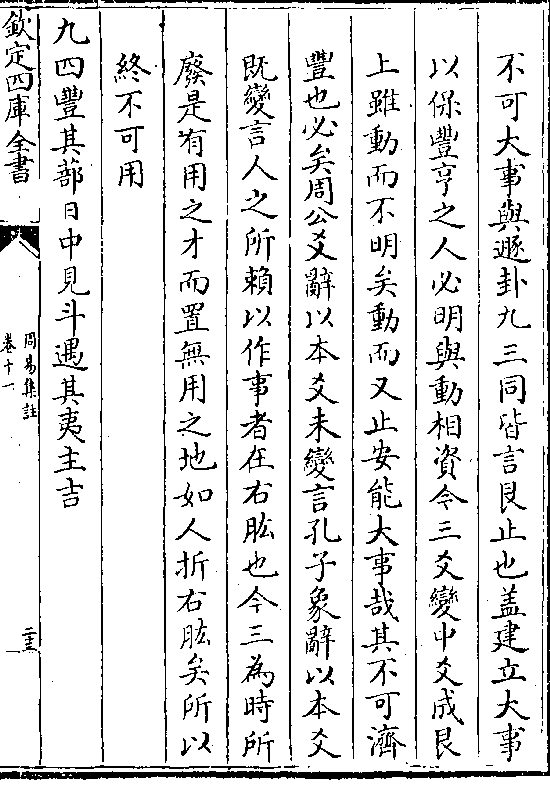 不可大事與遯卦九三同皆言艮止也盖建立大事
以保豐亨之人必明與動相資今三爻變中爻成艮
上雖動而不明矣動而又止安能大事哉其不可濟
豐也必矣周公爻辭以本爻未變言孔子象辭以本爻
既變言人之所賴以作事者在右肱也今三為時所
廢是有用之才而置無用之地如人折右肱矣所以
終不可用
九四豐其蔀日中見斗遇其夷主吉
欽定四庫全書
周易集註
卷十一
二十五